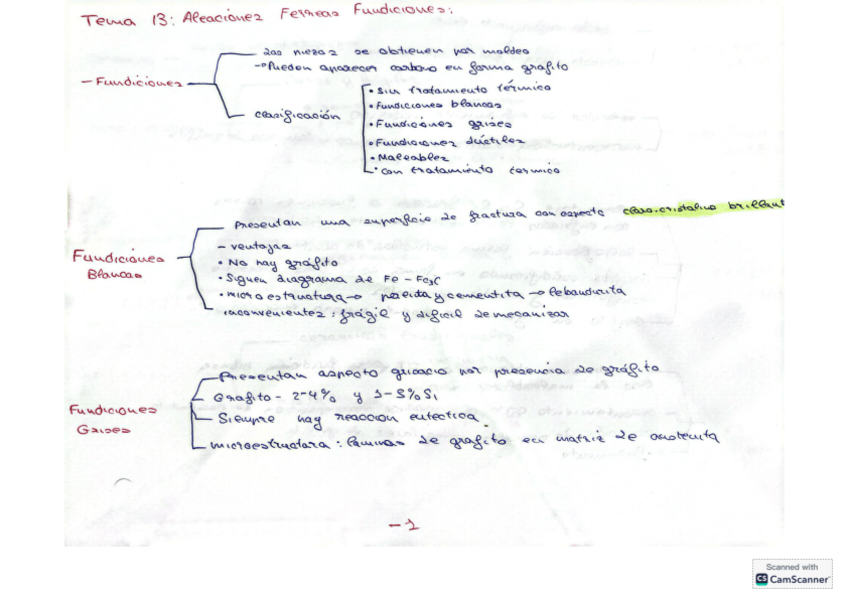 Tema 13: Aleaciones Ferreas Fundiciones:
- Fundiciones
las piezas se obtienen por moldeo
→ Pueden aparecer carbono en forma grafito
clasificación
• Sin tratamiento térmico
• Fundiciones blancas
• Fundiciones grises
• Fundiciones dúctiles
• Maleables
• con tratamiento termico
Fundiciones Blancas
Presentan una superficie de fractura con aspecto claro.cristalino brillant
- ventajas
• No hay gráfito
• Siguen diagrama de Fe - Fe3C
• microestructura → perlita y cementita → ledeburita
inconvenientes: frágil y dificil de mecanizar
Fundiciones Grises
Presentan aspecto grisaceo por presencia de gráfito
Grafito - 2-4% y 1-3% Si
Siempre hay reaccion eutectica.
microestructura: láminas de grafito en matriz de austenita
-1
Scanned with
CS CamScanner